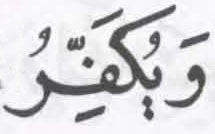 وَيُكَفِّرُ